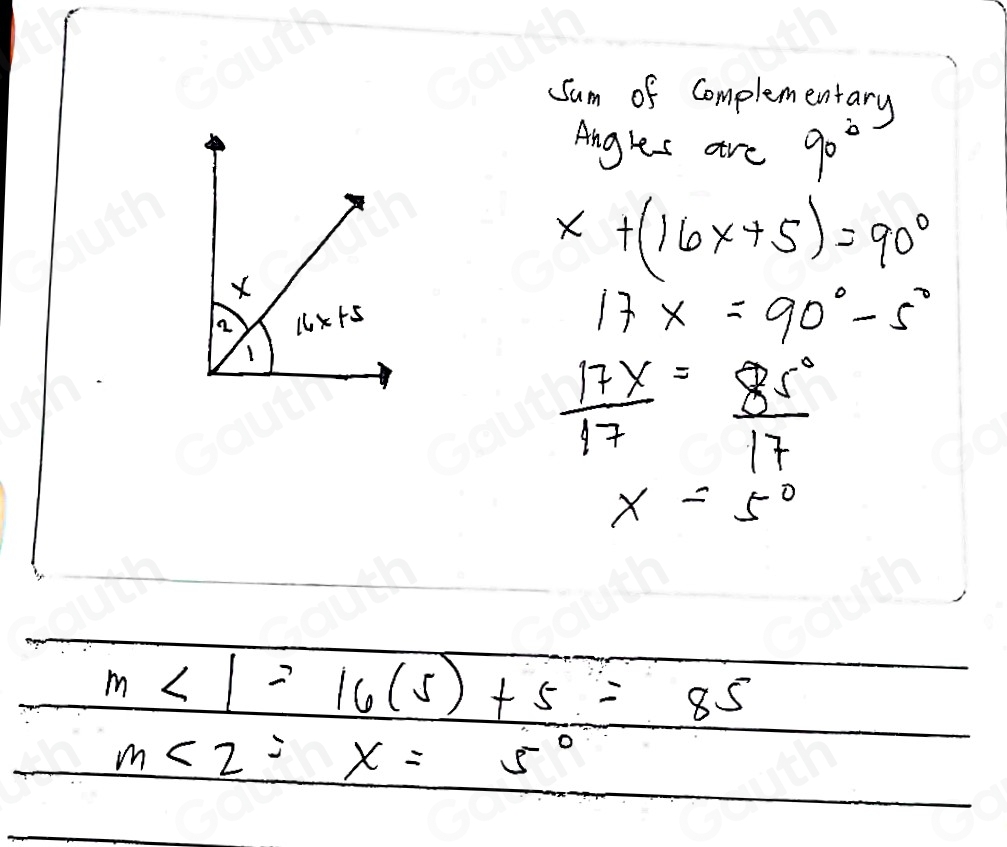 Sum of Complementary
Angles are 90°
x + (16x+5) = 90°
17x = 90° - 5°
17x = 85°
17 17
x = 5°
x
2
16x+5
1
m < 1 = 16(5) + 5 = 85
m < 2 = x = 5°